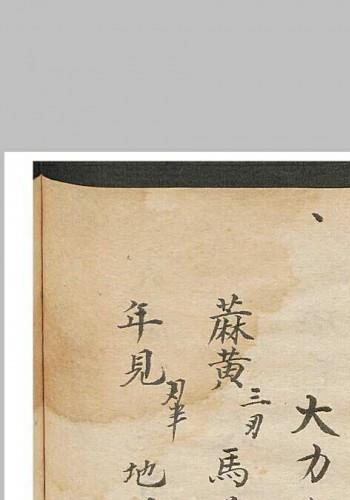 大力
蔴黄三刃馬
年見刃半地